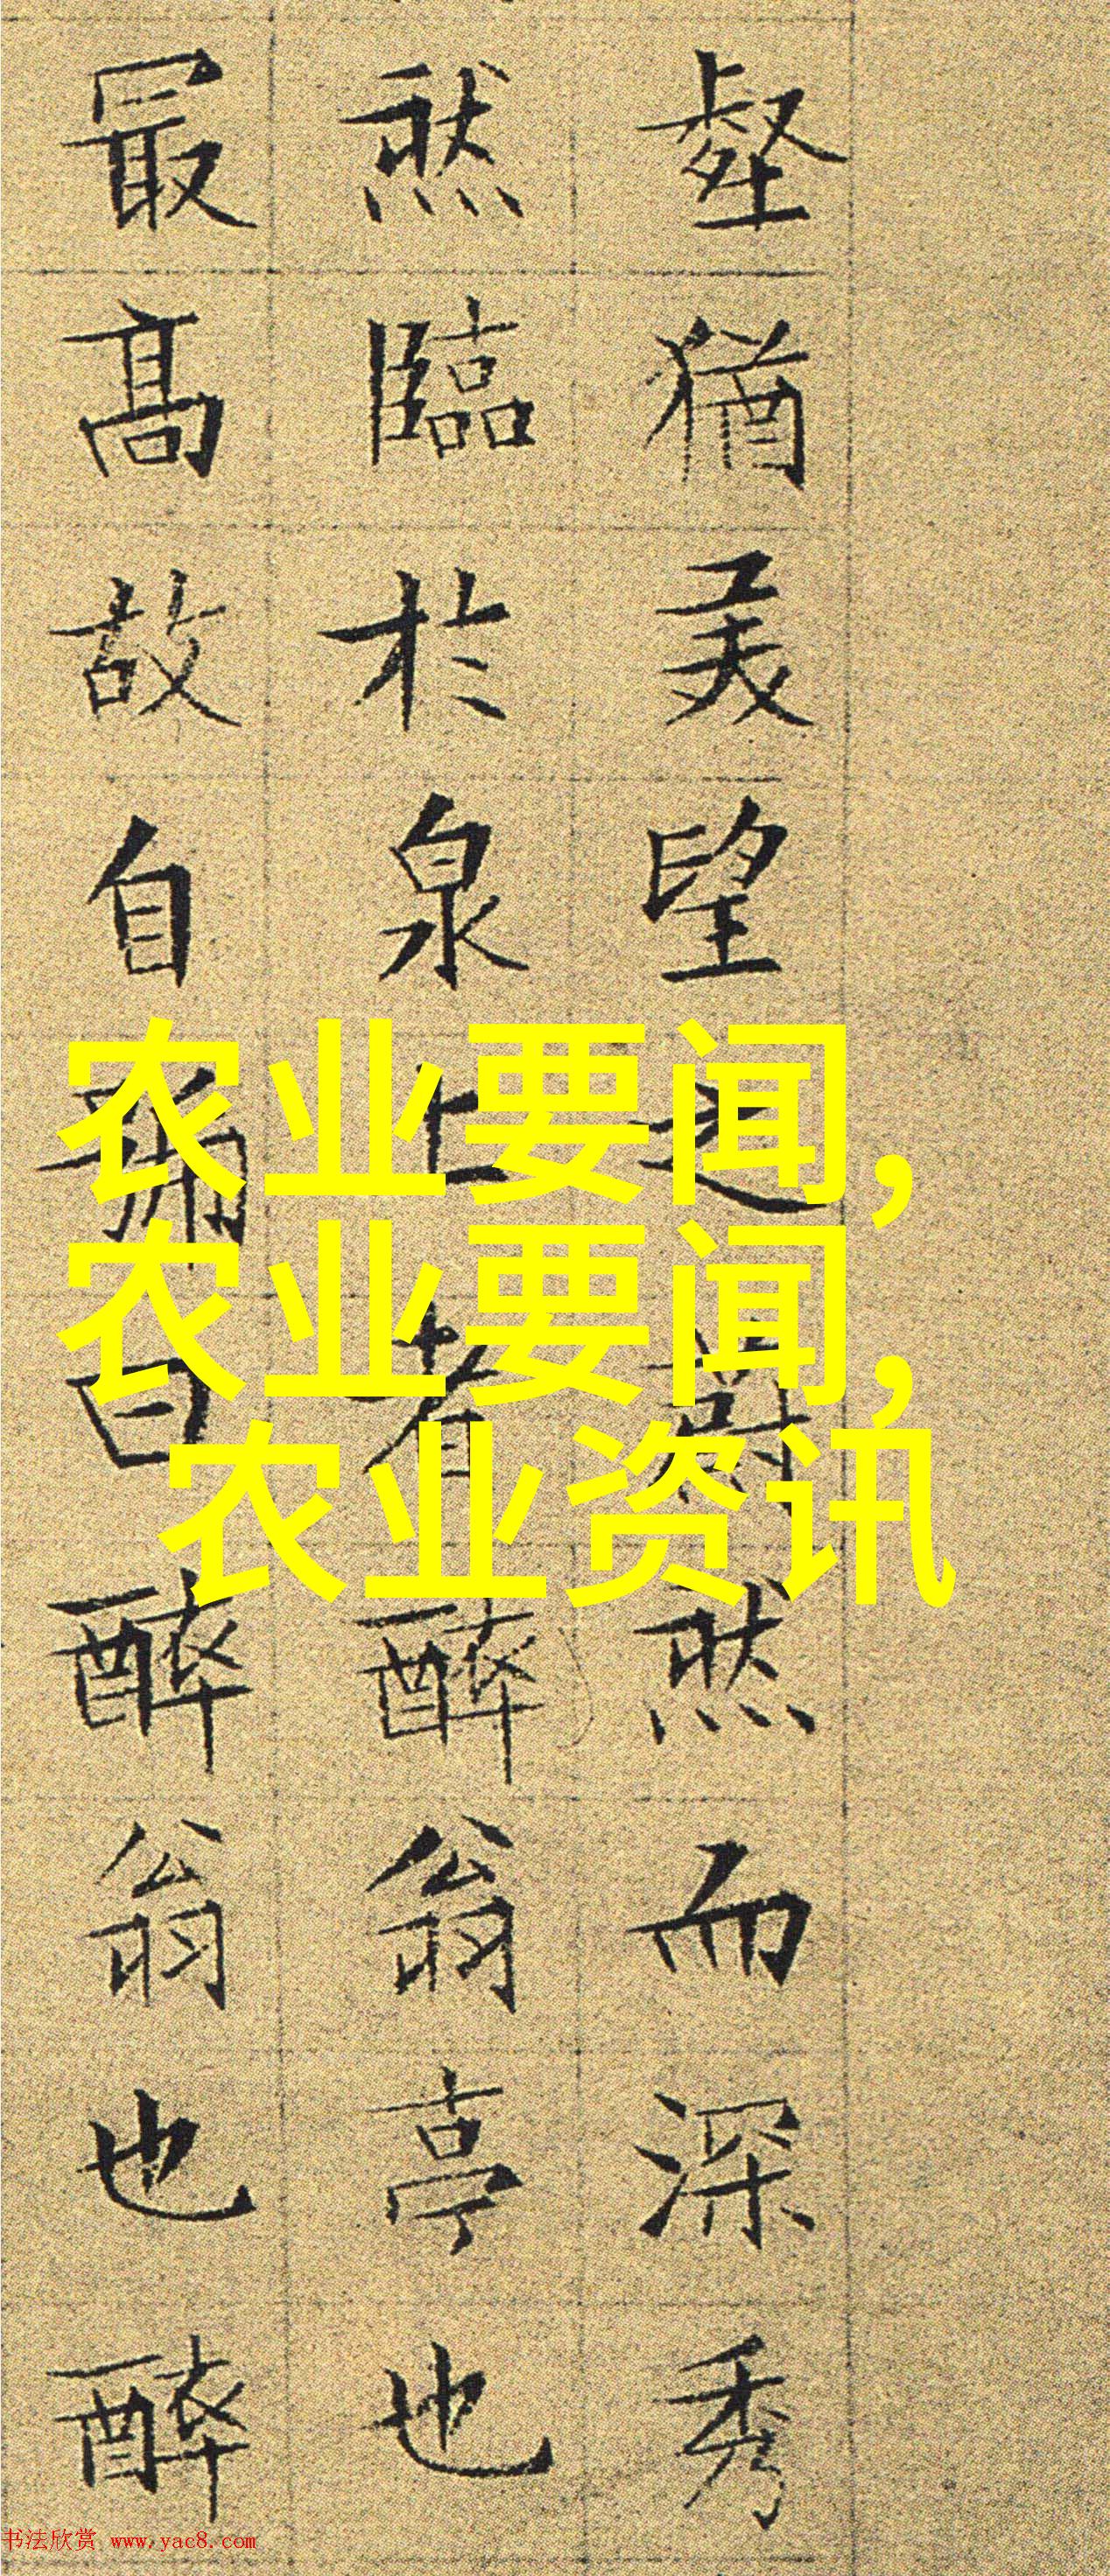 壑猶美望之蔚然而深秀
然臨於泉上者醉翁亭也
最高故自曰醉翁也醉
农业要闻,
农业要闻,
农业资讯
书法欣赏 www.yac8.com